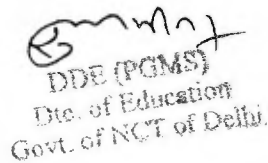 DDE (PGMS)
Dte. of Education
Govt. of NCT of Delhi.